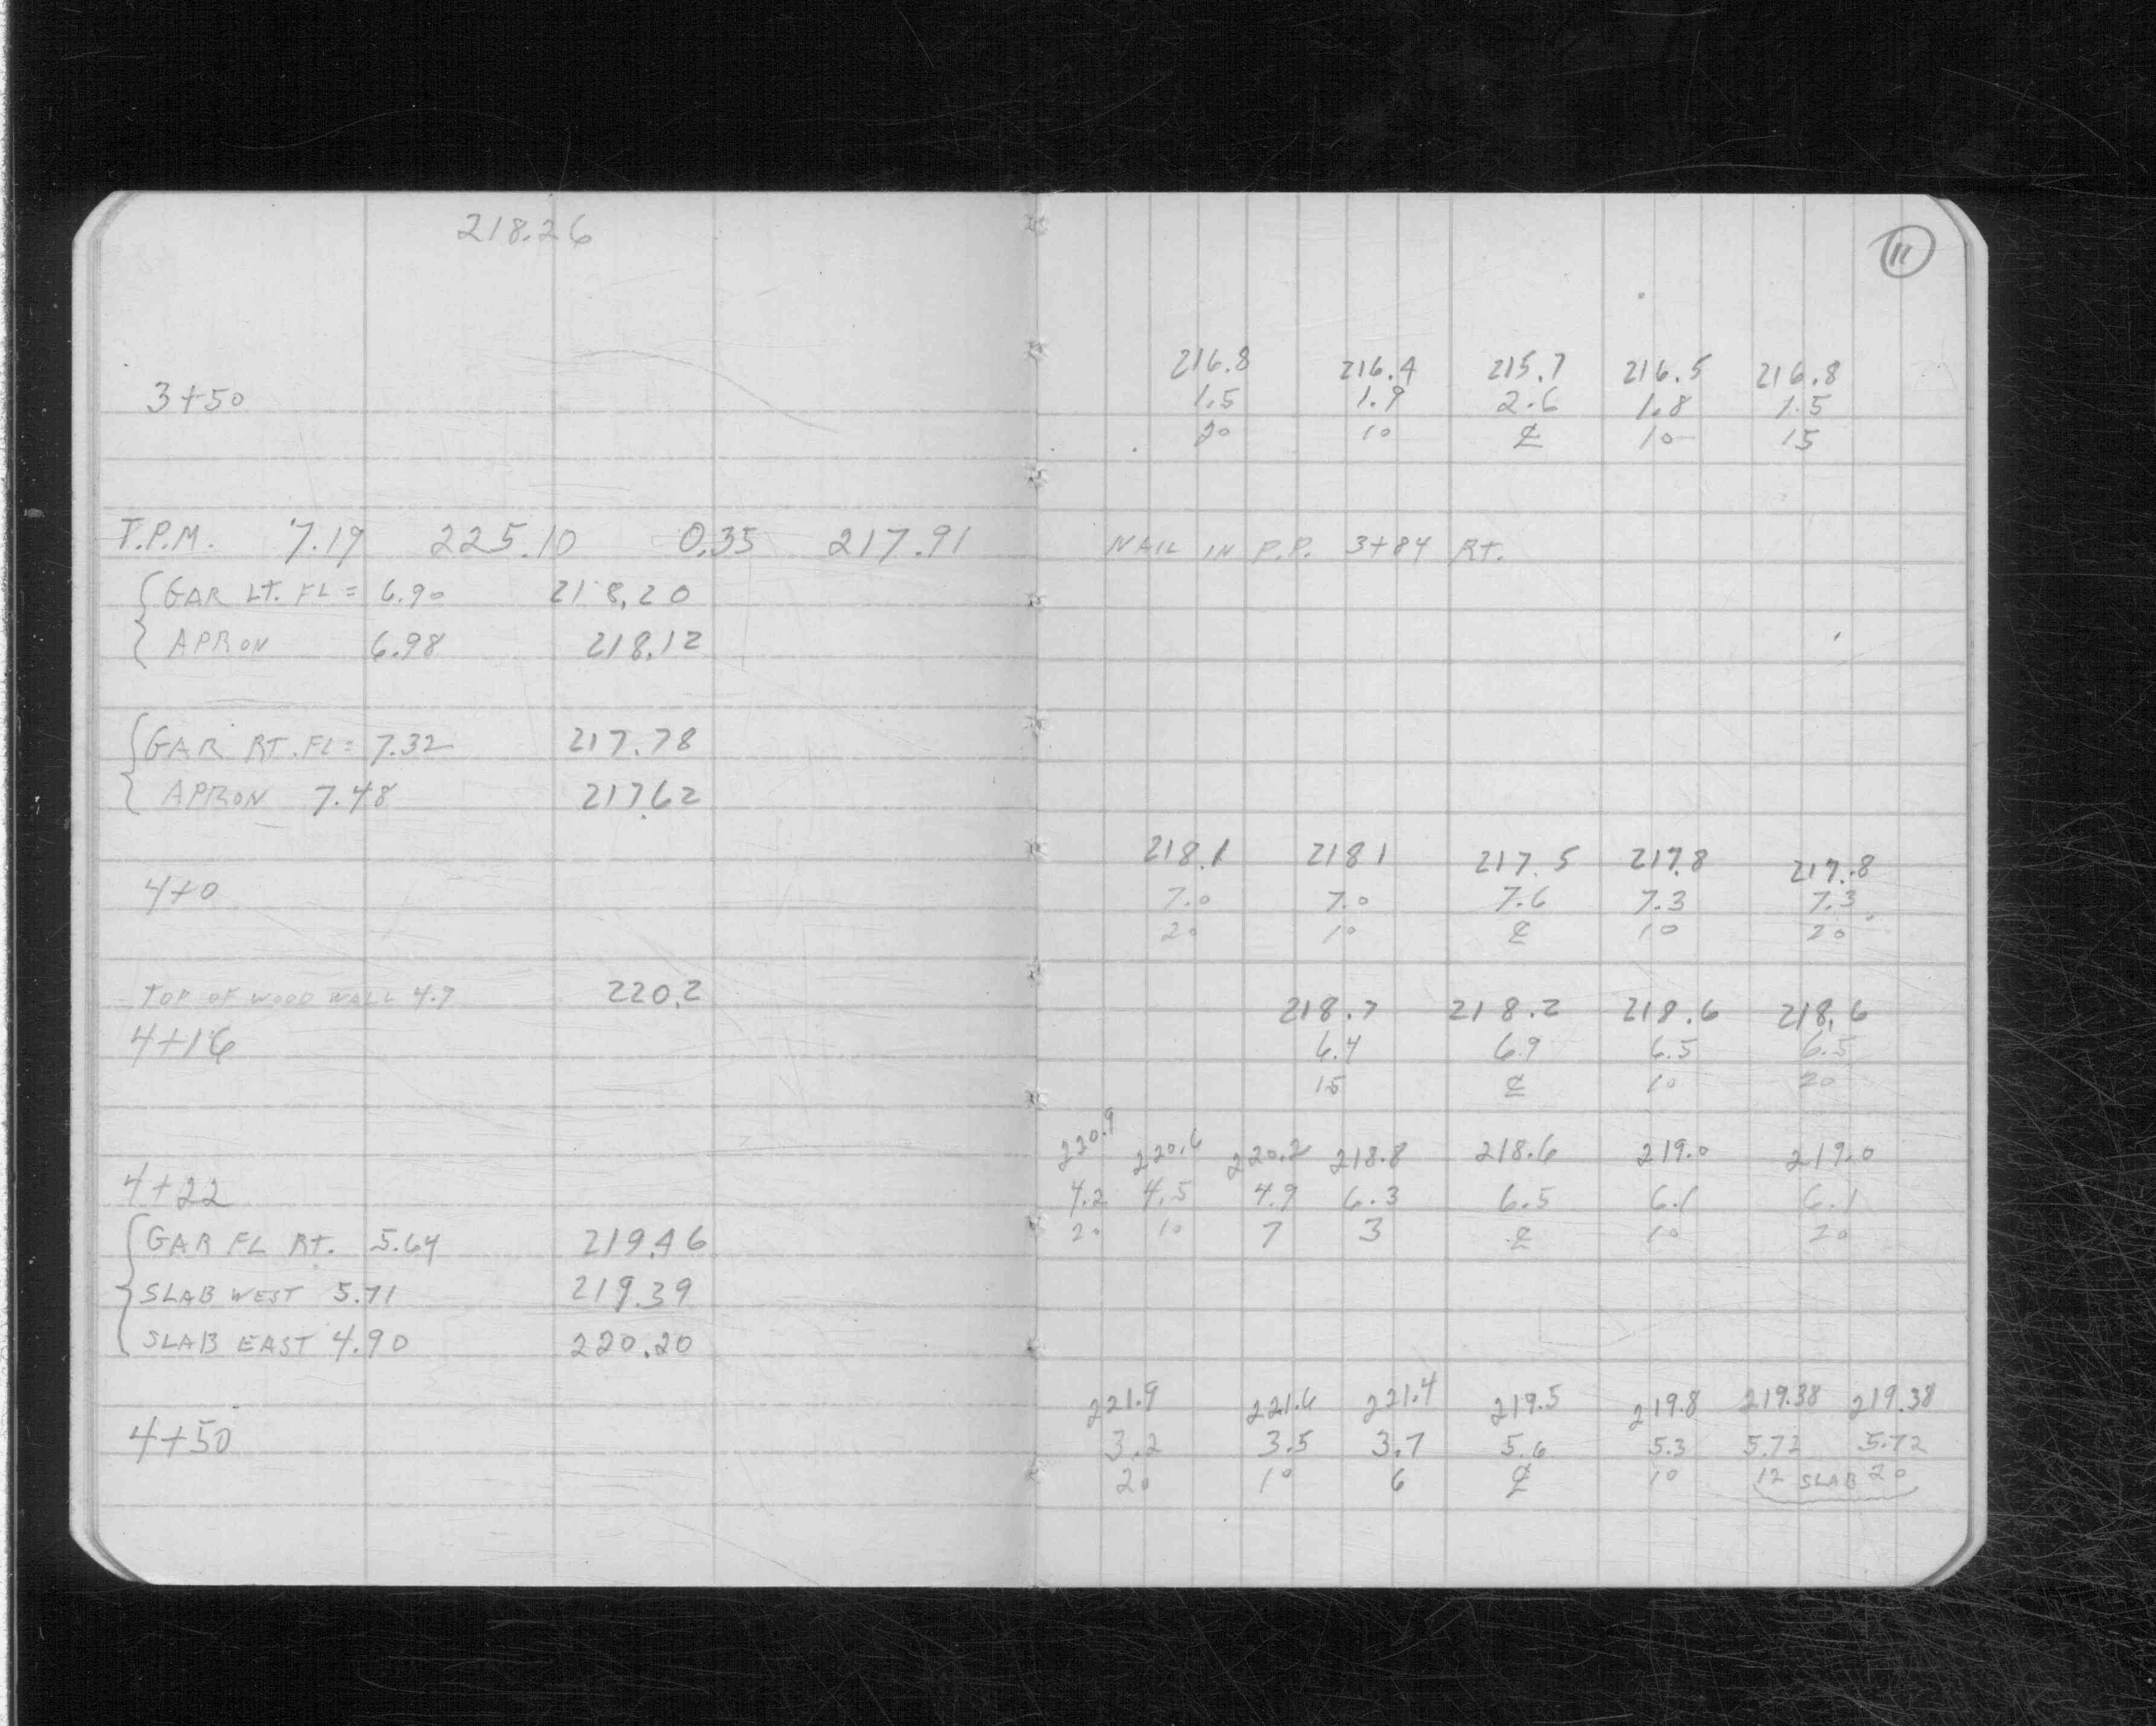 218.26
3+50
T.P.M. 7.19 225.10 0.35 217.91
GAR LT. FL = 6.90 218.20
APRON 6.98 218.12
GAR RT. FL = 7.32 217.78
APRON 7.48 217.62
4+0
TOP OF WOOD WALL 4.9 220.2
4+16
4+22
GAR FL RT. 5.64 219.46
SLAB WEST 5.71 219.39
SLAB EAST 4.90 220.20
4+50
11
216.8 216.4 215.7 216.5 216.8
1.5 1.9 2.6 1.8 1.5
20 10 ℄ 10 15
NAIL IN P.P. 3+84 RT.
218.1 218 1 217.5 217.8 217.8
7.0 7.0 7.6 7.3 7.3
20 10 ℄ 10 20
218.7 218.2 218.6 218.6
6.4 6.9 6.5 6.5
15 ℄ 10 20
220.9 220.6 220.2 218.8 218.6 219.0 219.0
4.2 4.5 4.9 6.3 6.5 6.1 6.1
20 10 7 3 ℄ 10 20
221.9 221.6 221.4 219.5 219.8 219.38 219.38
3.2 3.5 3.7 5.6 5.3 5.72 5.72
20 10 6 ℄ 10 12 SLAB 20